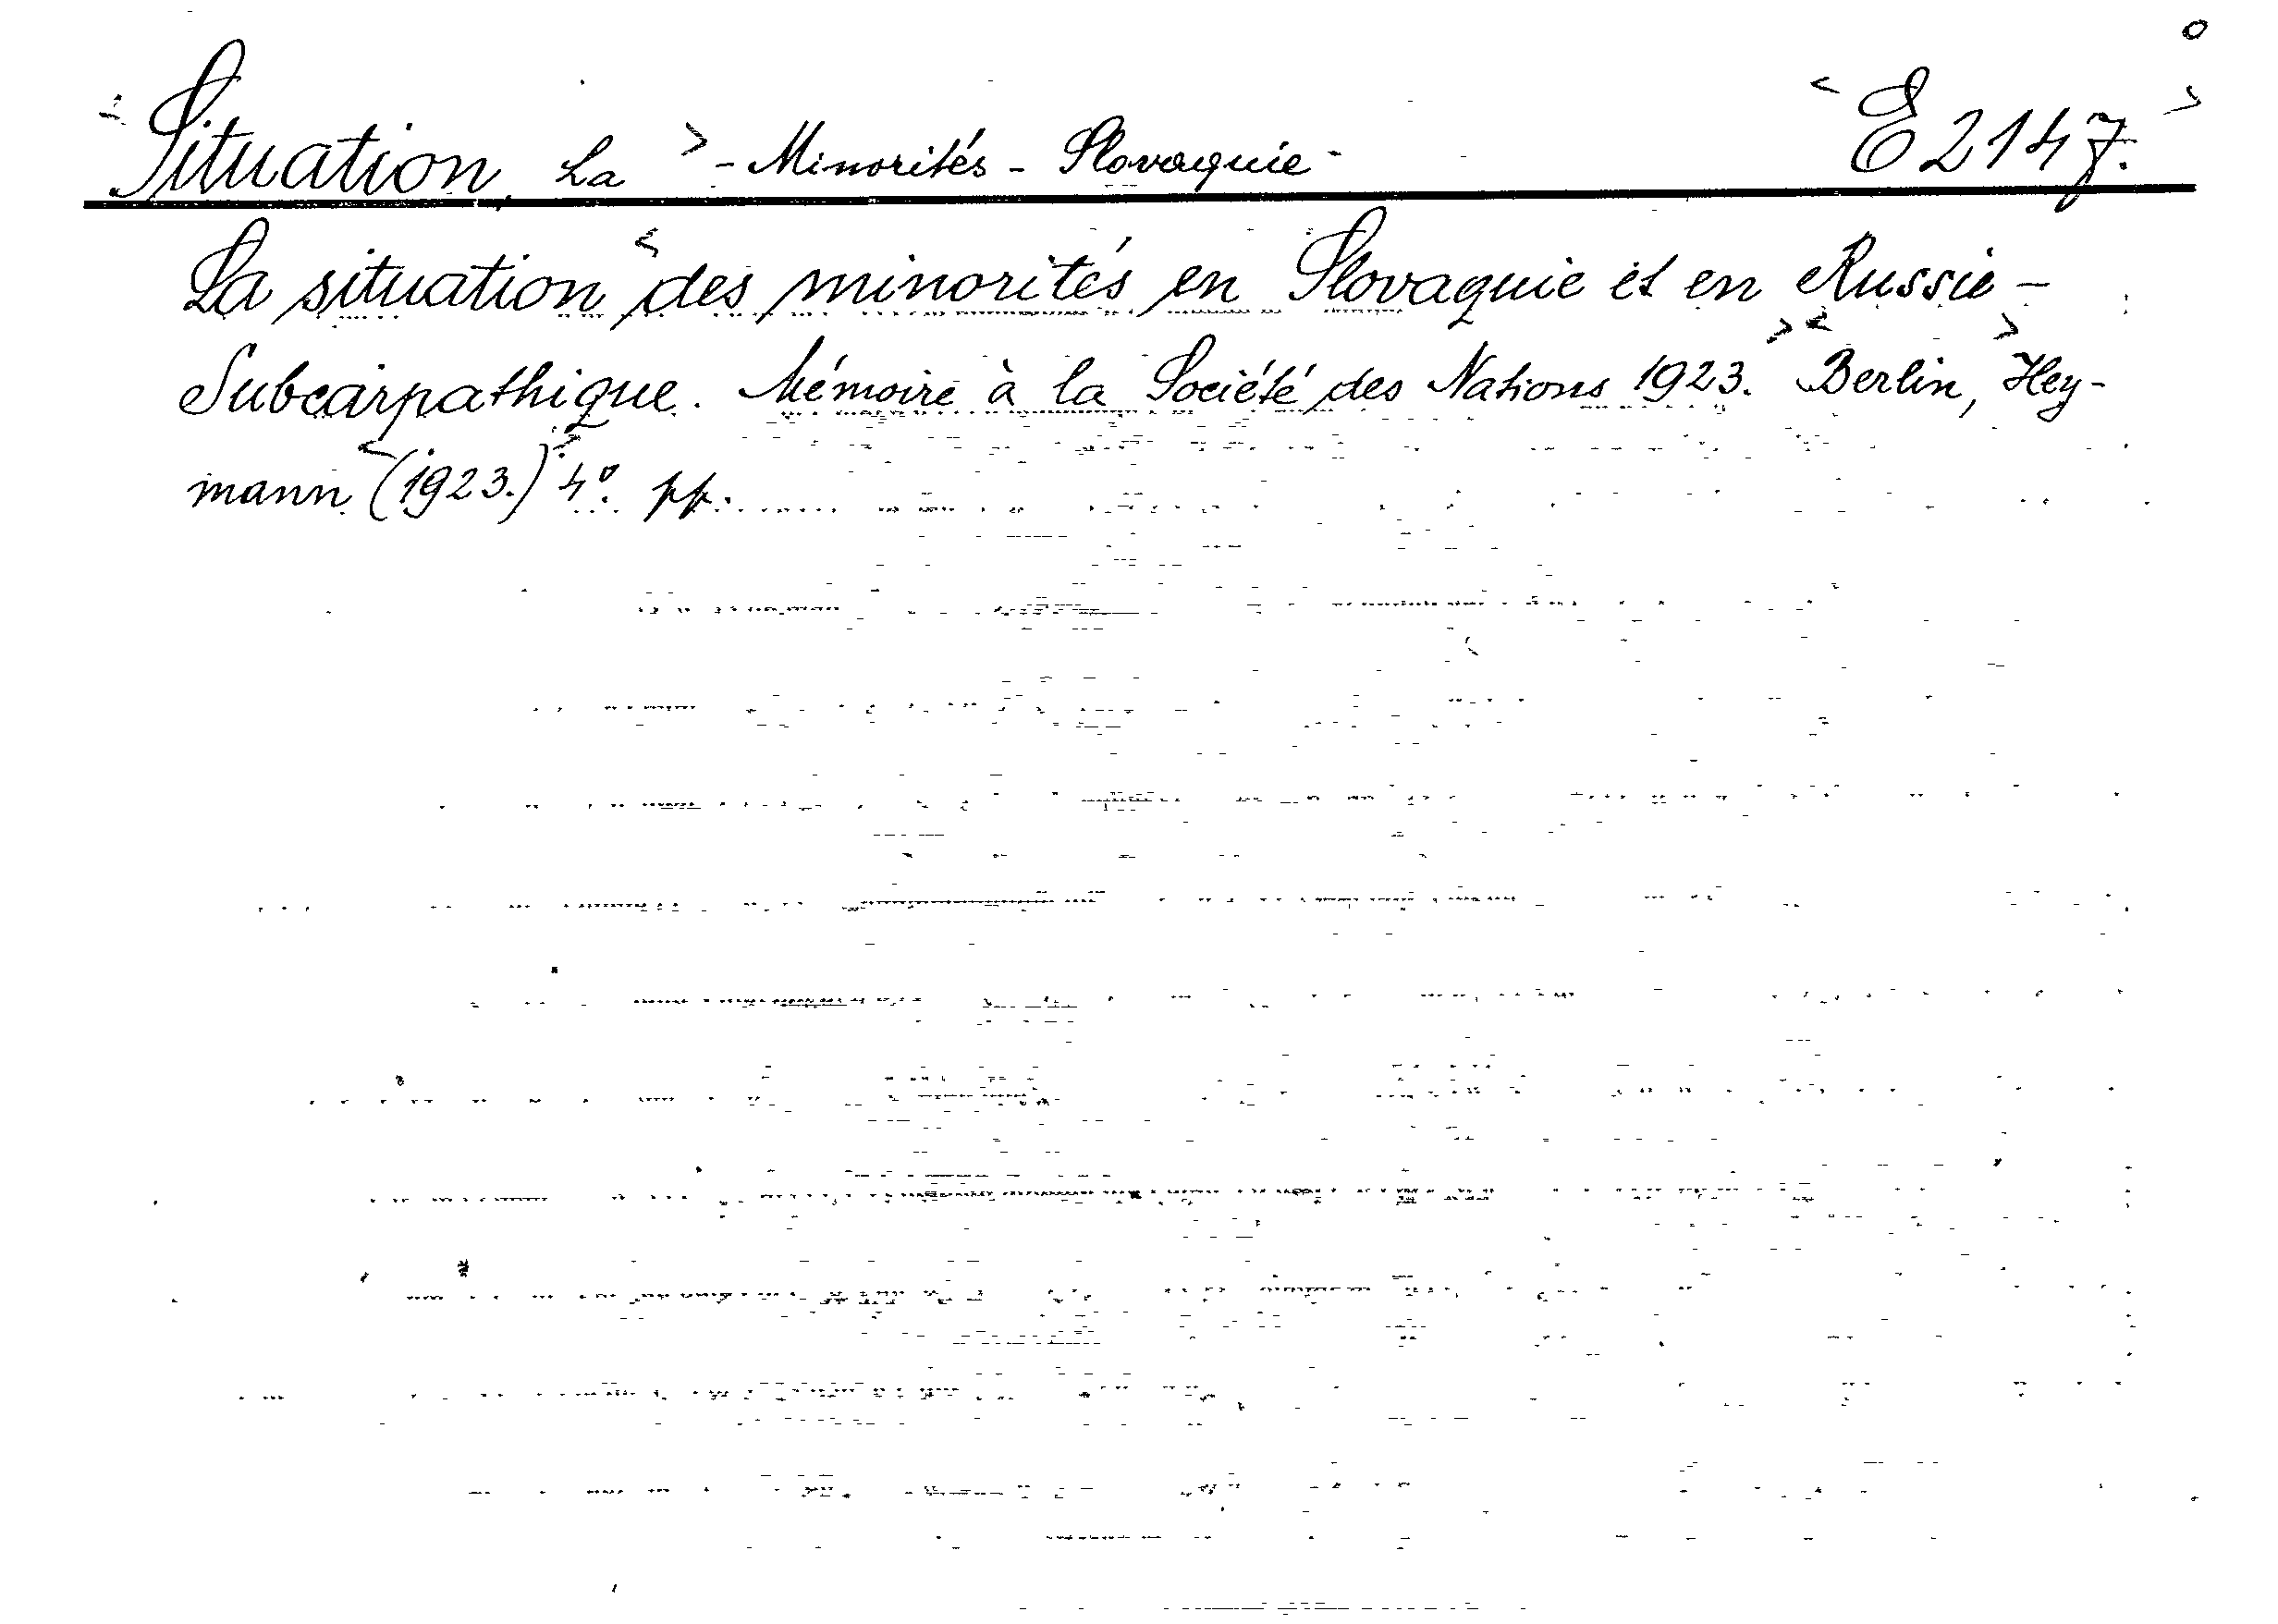 Situation, La - Minorités - Slovaquie - E 2147.
La situation des minorités en Slovaquie et en Russie -
Subcarpathique. Mémoire à la Société des Nations 1923. Berlin, Hey-
mann (1923.) 4°. pp.